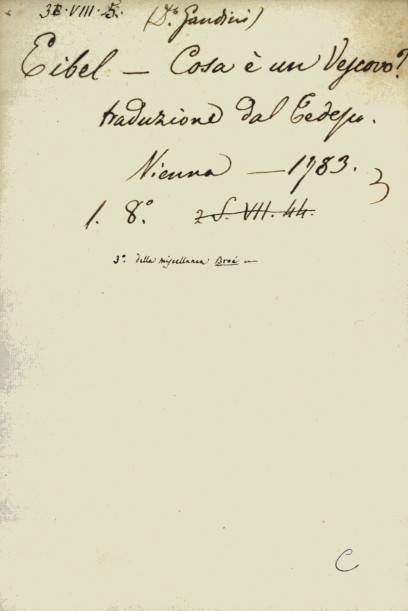 3E.VIII.5.
(Dr. Gandini)
Eibel — Cosa è un Vescovo?
traduzione dal Tedesco.
Vienna — 1783.
1. 8.° 2 S. VII. 44.
3°. della miscellanea
C